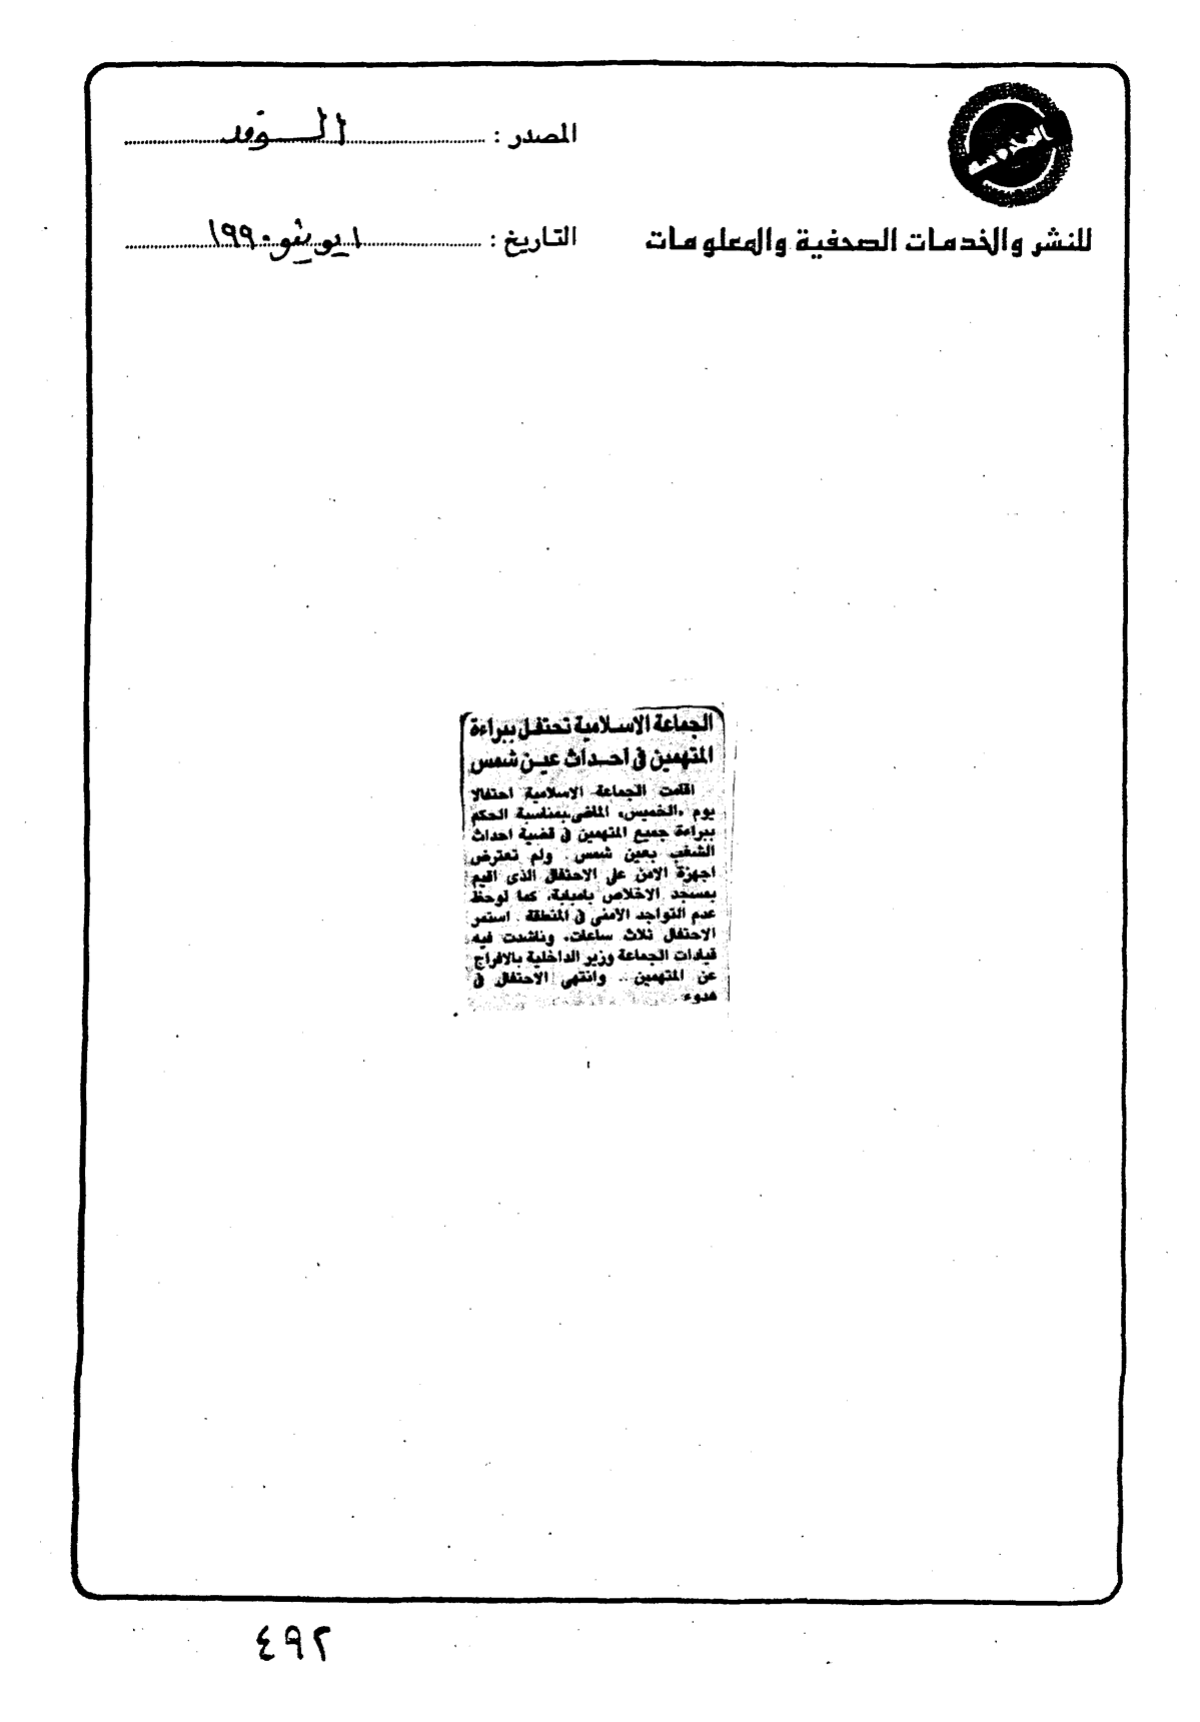 المصدر : الوفد
التاريخ : ١ يونيو ١٩٩٠
للنشر والخدمات الصحفية والمعلومات
الجماعة الاسلامية تحتفل ببراءة
المتهمين فى أحداث عين شمس
اقامت الجماعة الاسلامية احتفالا
يوم «الخميس» الماضى بمناسبة الحكم
ببراءة جميع المتهمين فى قضية احداث
الشغب بعين شمس . ولم تعترض
اجهزة الامن على الاحتفال الذى اقيم
بمسجد الاخلاص بامبابة، كما لوحظ
عدم التواجد الامنى فى المنطقة . استمر
الاحتفال ثلاث ساعات، وناشدت فيه
قيادات الجماعة وزير الداخلية بالافراج
عن المتهمين .. وانتهى الاحتفال فى
هدوء
٤٩٢